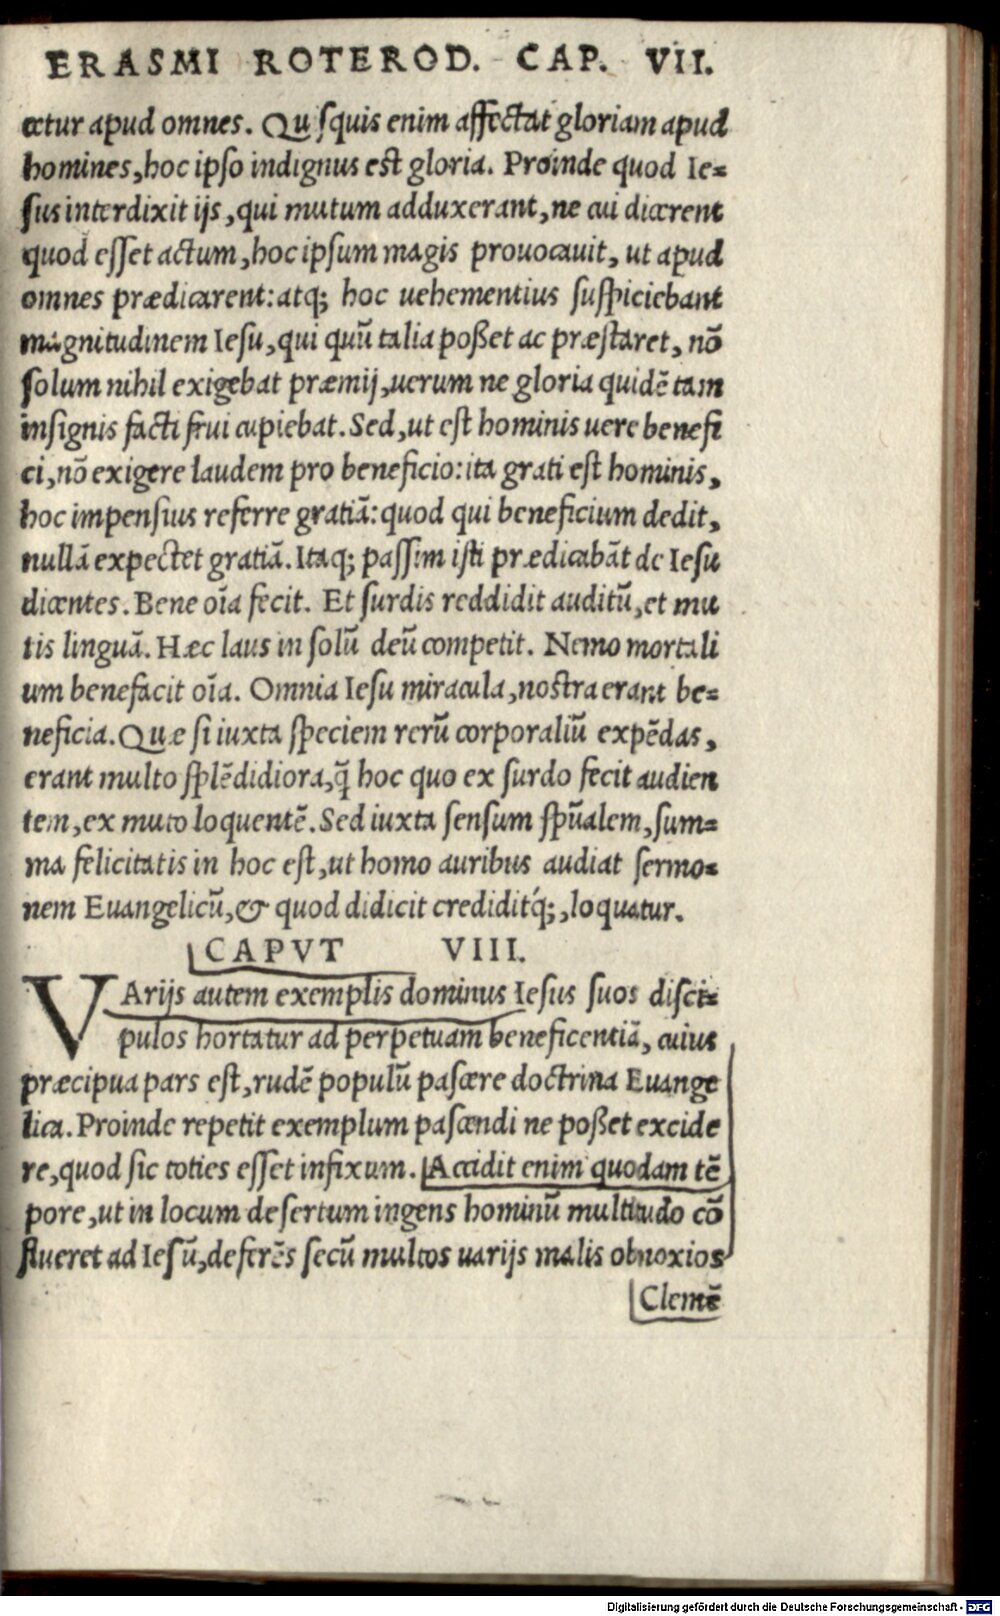 ERASMI ROTEROD. CAP. VII.
cetur apud omnes. Quisquis enim affectat gloriam apud
homines, hoc ipso indignus est gloria. Proinde quod Ie=
sus interdixit ijs, qui mutum adduxerant, ne cui dicerent
quod esset actum, hoc ipsum magis prouocauit, ut apud
omnes prædicarent: atq; hoc uehementius suspiciebant
magnitudinem Iesu, qui quũ talia poßet ac præstaret, nõ
solum nihil exigebat præmij, uerum ne gloria quidẽ tam
insignis facti frui cupiebat. Sed, ut est hominis uere benefi
ci, nõ exigere laudem pro beneficio: ita grati est hominis,
hoc impensius referre gratiã: quod qui beneficium dedit,
nullã expectet gratiã. Itaq; passim isti prædicabãt de Iesu
dicentes. Bene oĩa fecit. Et surdis reddidit auditũ, et mu
tis linguã. Hæc laus in solũ deũ competit. Nemo mortali
um benefacit oĩa. Omnia Iesu miracula, nostra erant be=
neficia. Quæ si iuxta speciem rerũ corporaliũ expẽdas,
erant multo splẽdidiora, q̃ hoc quo ex surdo fecit audien
tem, ex muto loquentẽ. Sed iuxta sensum spũalem, sum=
ma felicitatis in hoc est, ut homo auribus audiat sermo=
nem Euangelicũ, & quod didicit crediditq́;, loquatur.
CAPVT VIII.
VArijs autem exemplis dominus Iesus suos disci=
pulos hortatur ad perpetuam beneficentiã, cuius
præcipua pars est, rudẽ populũ pascere doctrina Euange
lica. Proinde repetit exemplum pascendi ne poßet excide
re, quod sic toties esset infixum. Accidit enim quodam tẽ
pore, ut in locum desertum ingens hominũ multitudo cõ
flueret ad Iesũ, deferẽs secũ multos uarijs malis obnoxios
Clemẽ
Digitalisierung gefördert durch die Deutsche Forschungsgemeinschaft - DFG